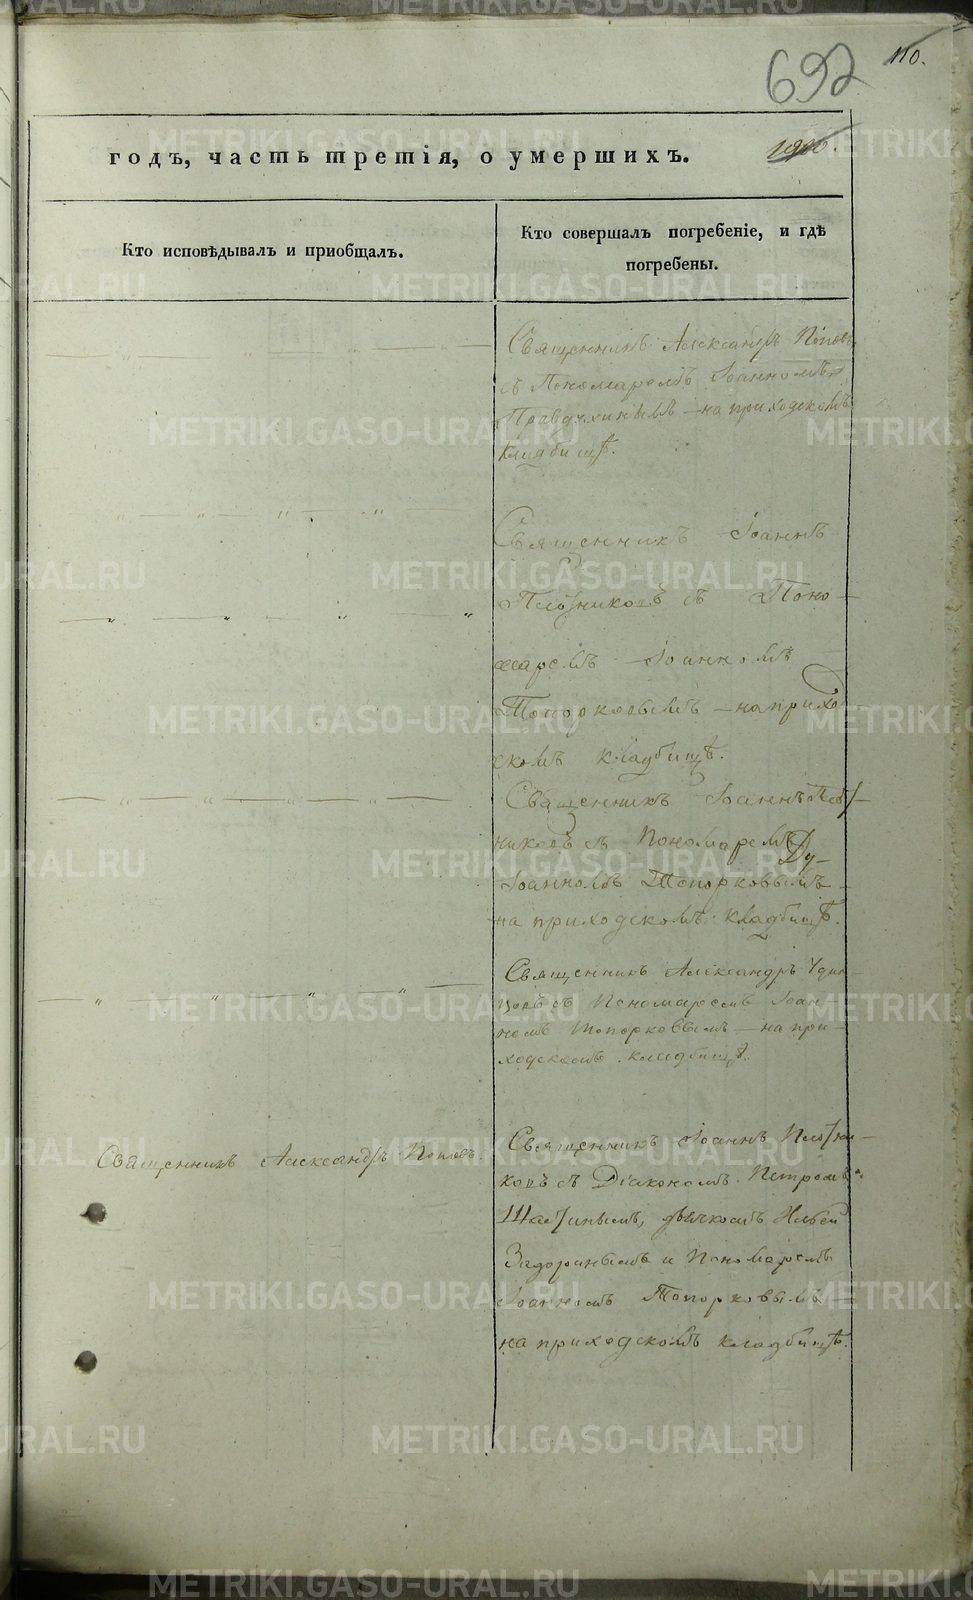 692
110.
годъ, часть третія, о умершихъ.
Кто исповѣдывалъ и приобщалъ.
Кто совершалъ погребеніе, и гдѣ
погребены.
Священникъ Александръ Поповъ
съ Пономаремъ Іоанномъ
на приходскомъ
кладбищѣ.
Священникъ Іоаннъ
Плотниковъ съ Поно-
маремъ Іоанномъ
Топорковымъ – на приход
скомъ кладбищѣ.
Священникъ Іоаннъ Плот-
никовъ съ Пономаремъ
Іоанномъ Топорковымъ
на приходскомъ кладбищѣ.
Священникъ Александръ Удин-
цовъ съ Пономаремъ Іоан-
номъ Топорковымъ – на при-
ходскомъ кладбищѣ.
Священникъ Александръ Поповъ.
Священникъ Іоаннъ Плотни-
ковъ съ Діакономъ Петромъ
дьячкомъ
и Пономаремъ
Іоанномъ Топорковымъ –
на приходскомъ кладбищѣ.
METRIKI.GASO-URAL.RU